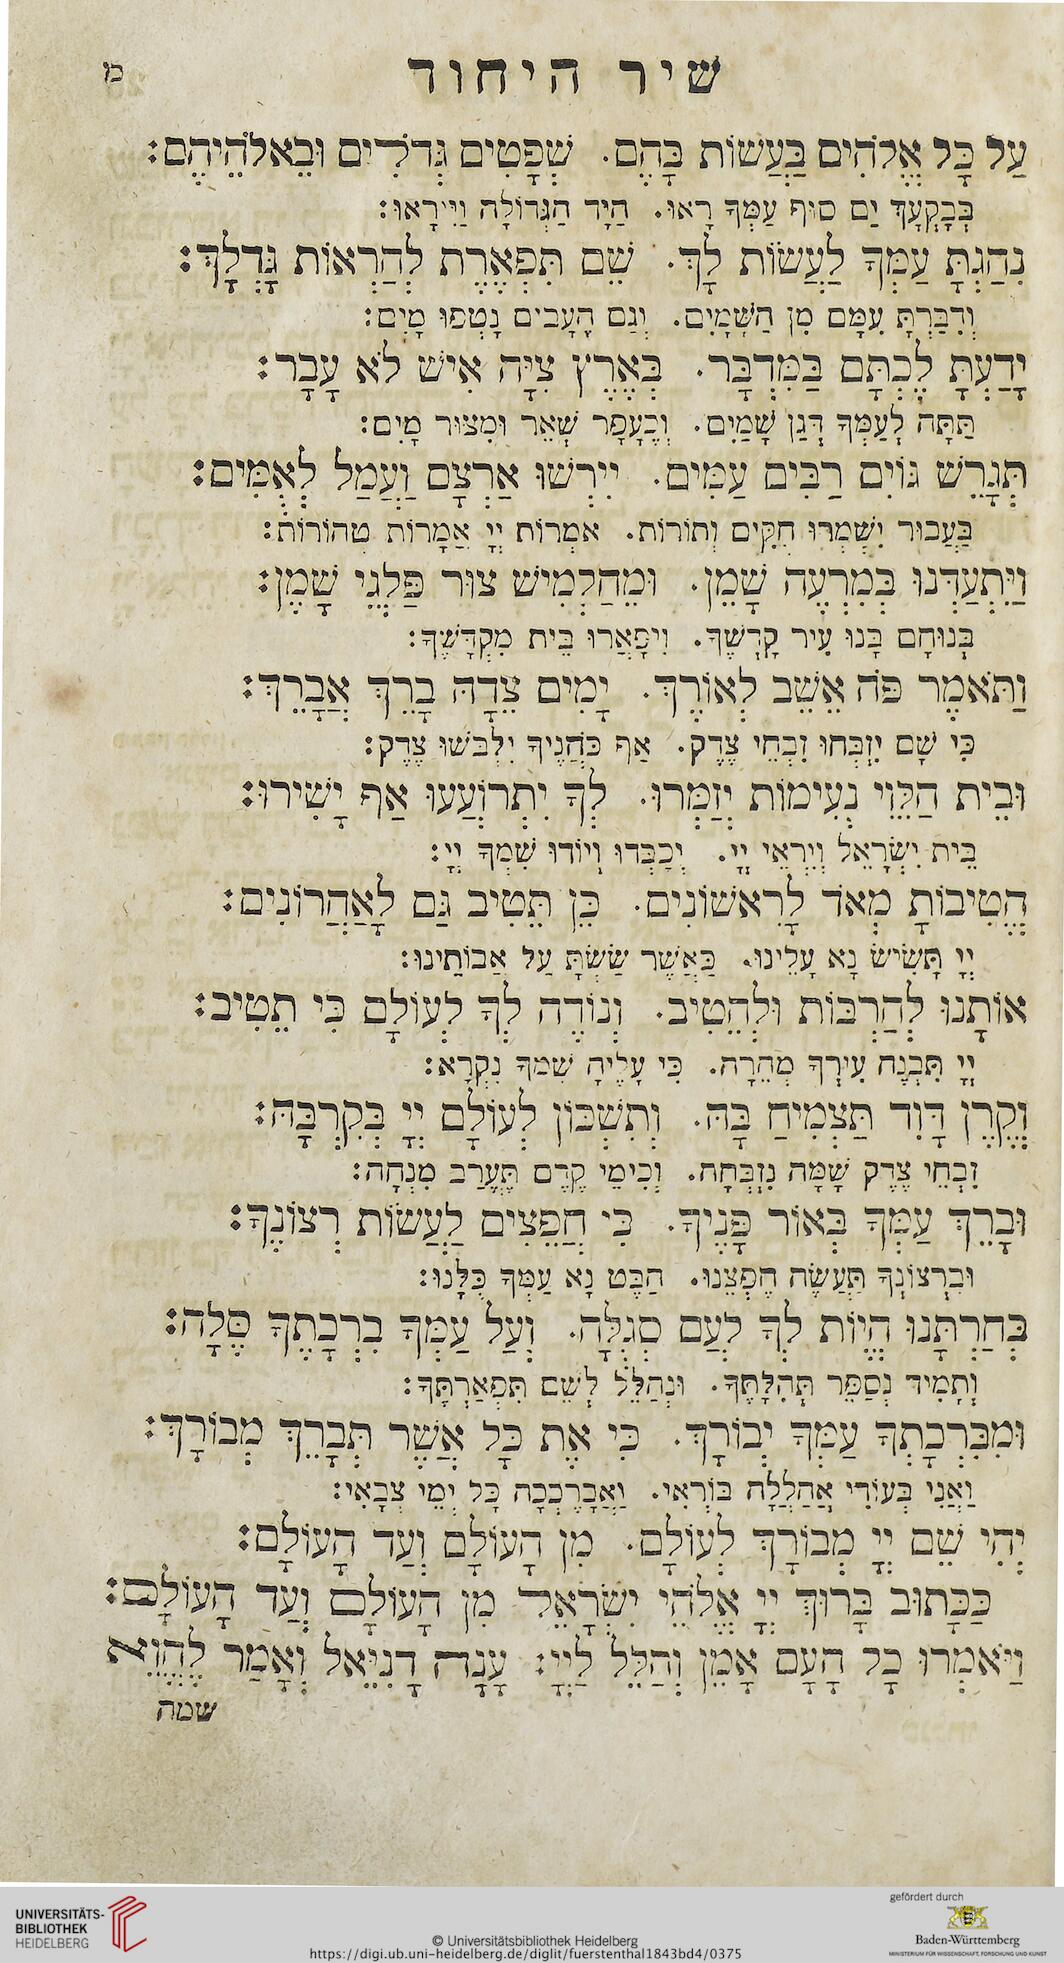 שיר היחוד
מ
עַל כָּל אֱלֹהִים בַּעֲשׂוֹת בָּהֶם. שְׁפָטִים גְּדֹלִים וּבֵאלֹהֵיהֶם:
בְּבָקְעֲךָ יַם סוּף עַמְּךָ רָאוּ. הַיָּד הַגְּדוֹלָה וַיִּירָאוּ:
נִהַגְתָּ עַמְּךָ לַעֲשׂוֹת לָךְ. שֵׁם תִּפְאֶרֶת לְהַרְאוֹת גָּדְלָךְ:
וְדִבַּרְתָּ עִמָּם מִן הַשָּׁמָיִם. וְגַם הָעָבִים נָטְפוּ מָיִם:
יָדַעְתָּ לֶכְתָּם בַּמִּדְבָּר. בְּאֶרֶץ צִיָּה אִישׁ לֹא עָבָר:
תַּתָּה לְעַמְּךָ דְּגַן שָׁמַיִם. וְכֶעָפָר שְׁאֵר וּמִצּוּר מָיִם:
תְּגָרֵשׁ גּוֹיִם רַבִּים עַמִּים. יִירְשׁוּ אַרְצָם וַעֲמַל לְאֻמִּים:
בַּעֲבוּר יִשְׁמְרוּ חֻקִּים וְתוֹרוֹת. אִמְרוֹת יְיָ אֲמָרוֹת טְהוֹרוֹת:
וַיִּתְעַדְּנוּ בְּמִרְעֶה שָׁמֵן. וּמֵחַלְמִישׁ צוּר פַּלְגֵי שָׁמֶן:
בְּנוּחָם בָּנוּ עִיר קָדְשֶׁךָ. וַיְפָאֲרוּ בֵּית מִקְדָּשֶׁךָ:
וַתֹּאמֶר פֹּה אֵשֵׁב לְאוֹרֶךְ. יָמִים צֵדָהּ בָרֵךְ אֲבָרֵךְ:
כִּי שָׁם יִזְבְּחוּ זִבְחֵי צֶדֶק. אַף כֹּהֲנֶיךָ יִלְבְּשׁוּ צֶדֶק:
וּבֵית הַלֵּוִי נְעִימוֹת יְזַמְּרוּ. לְךָ יִתְרוֹעֲעוּ אַף יָשִׁירוּ:
בֵּית יִשְׂרָאֵל וְיִרְאֵי יְיָ. יְכַבְּדוּ וְיוֹדוּ שִׁמְךָ יְיָ:
הֱטִיבוֹתָ מְאֹד לָרִאשׁוֹנִים. כֵּן תֵּטִיב גַּם לָאַחֲרוֹנִים:
יְיָ תָּשִׂישׂ נָא עָלֵינוּ. כַּאֲשֶׁר שַׂשְׂתָּ עַל אֲבוֹתֵינוּ:
אוֹתָנוּ לְהַרְבּוֹת וּלְהֵטִיב. וְנוֹדֶה לְךָ לְעוֹלָם כִּי תֵטִיב:
יְיָ תִּבְנֶה עִירְךָ מְהֵרָה. כִּי עָלֶיהָ שִׁמְךָ נִקְרָא:
וְקֶרֶן דָּוִד תַּצְמִיחַ בָּהּ. וְתִשְׁכּוֹן לְעוֹלָם יְיָ בְּקִרְבָּהּ:
זִבְחֵי צֶדֶק שָׁמָּה נִזְבְּחָה. וְכִימֵי קֶדֶם תֶּעֱרַב מִנְחָה:
וּבָרֵךְ עַמְּךָ בְּאוֹר פָּנֶיךָ. כִּי חֲפֵצִים לַעֲשׂוֹת רְצוֹנֶךָ:
וּבִרְצוֹנְךָ תַּעֲשֶׂה חֶפְצֵנוּ. הַבֶּט נָא עַמְּךָ כֻּלָּנוּ:
בְּחַרְתָּנוּ הֱיוֹת לְךָ לְעַם סְגֻלָּה. וְעַל עַמְּךָ בִרְכָתֶךָ סֶּלָה:
וְתָמִיד נְסַפֵּר תְּהִלָּתֶךָ. וּנְהַלֵּל לְשֵׁם תִּפְאַרְתֶּךָ:
וּמִבִּרְכָתְךָ עַמְּךָ יְבוֹרָךְ. כִּי אֶת כָּל אֲשֶׁר תְּבָרֵךְ מְבוֹרָךְ:
וַאֲנִי בְּעוֹדִי אֲהַלְלָה בּוֹרְאִי. וַאֲבָרֶכְכָה כָּל יְמֵי צְבָאִי:
יְהִי שֵׁם יְיָ מְבוֹרָךְ לְעוֹלָם. מִן הָעוֹלָם וְעַד הָעוֹלָם:
כַּכָּתוּב בָּרוּךְ יְיָ אֱלֹהֵי יִשְׂרָאֵל מִן הָעוֹלָם וְעַד הָעוֹלָם:
וַיֹּאמְרוּ כָל הָעָם אָמֵן וְהַלֵּל לַיְיָ: עָנֵה דָנִיֵּאל וְאָמַר לֶהֱוֵא
שמה
UNIVERSITÄTS-
BIBLIOTHEK
HEIDELBERG
© Universitätsbibliothek Heidelberg
https://digi.ub.uni-heidelberg.de/diglit/fuerstenthal1843bd4/0375
gefördert durch
Baden-Württemberg
MINISTERIUM FÜR WISSENSCHAFT, FORSCHUNG UND KUNST